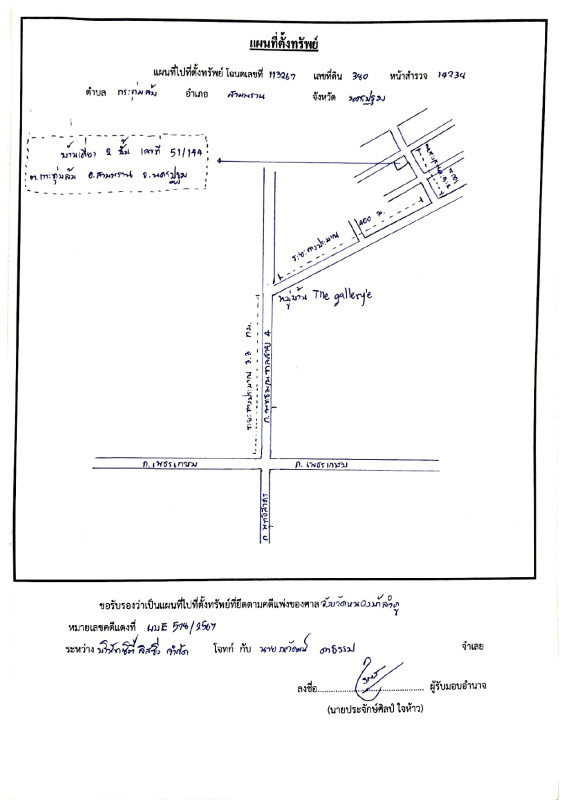 แผนที่ตั้งทรัพย์
แผนที่ไปที่ตั้งทรัพย์ โฉนดเลขที่ 113267 เลขที่ดิน 380 หน้าสำรวจ 14234
ตำบล กระทุ่มล้ม อำเภอ สามพราน จังหวัด นครปฐม
บ้านเดี่ยว 2 ชั้น เลขที่ 51/144
ต.กระทุ่มล้ม อ.สามพราน จ.นครปฐม
ระยะทางประมาณ 400 ม.
หมู่บ้าน The gallery'e
ระยะทางประมาณ 3.3 กม.
ถ.พุทธมณฑลสาย 4
ถ.เพชรเกษม
ถ.เพชรเกษม
ถ.พุทธสาคร
ขอรับรองว่าเป็นแผนที่ไปที่ตั้งทรัพย์ที่ยึดตามคดีแพ่งของศาล จังหวัดหนองบัวลำภู
หมายเลขคดีแดงที่ ผบE 578/2567
ระหว่าง บริษัท ลิสซิ่ง จำกัด โจทก์ กับ นาย จำเลย
ลงชื่อ ผู้รับมอบอำนาจ
(นายประจักษ์ศิลป์ ใจห้าว)